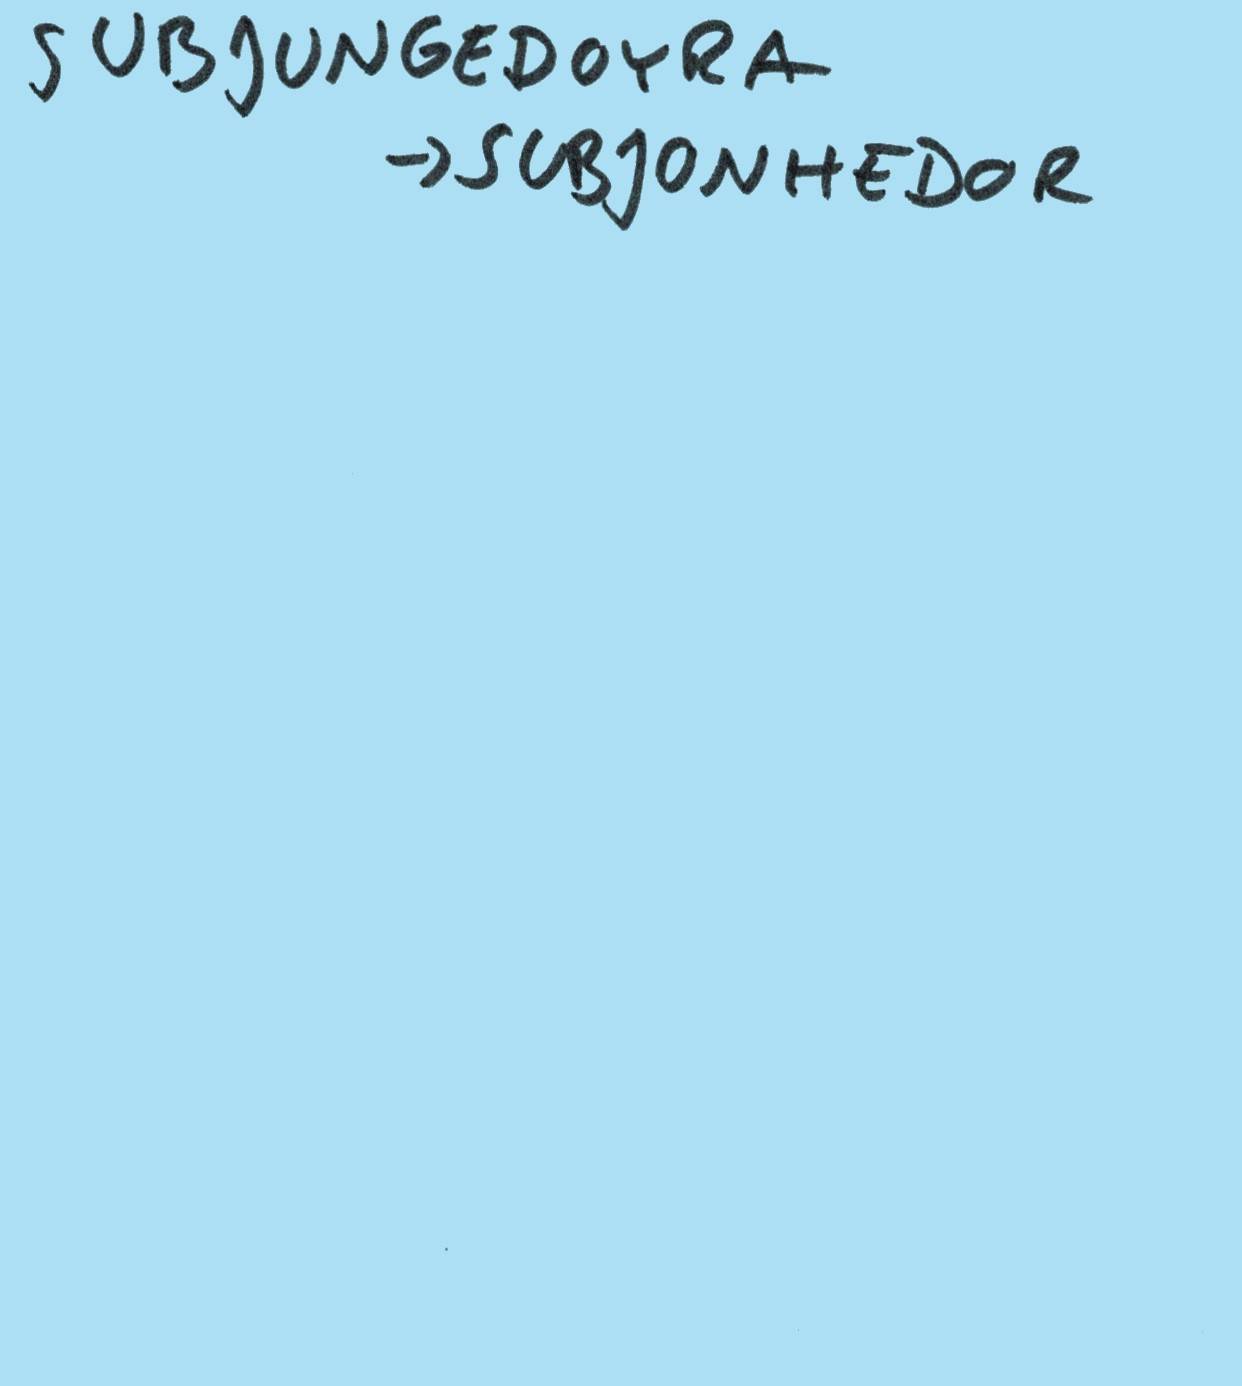 SUBJUNGEDOYRA
→SUBJONHEDOR